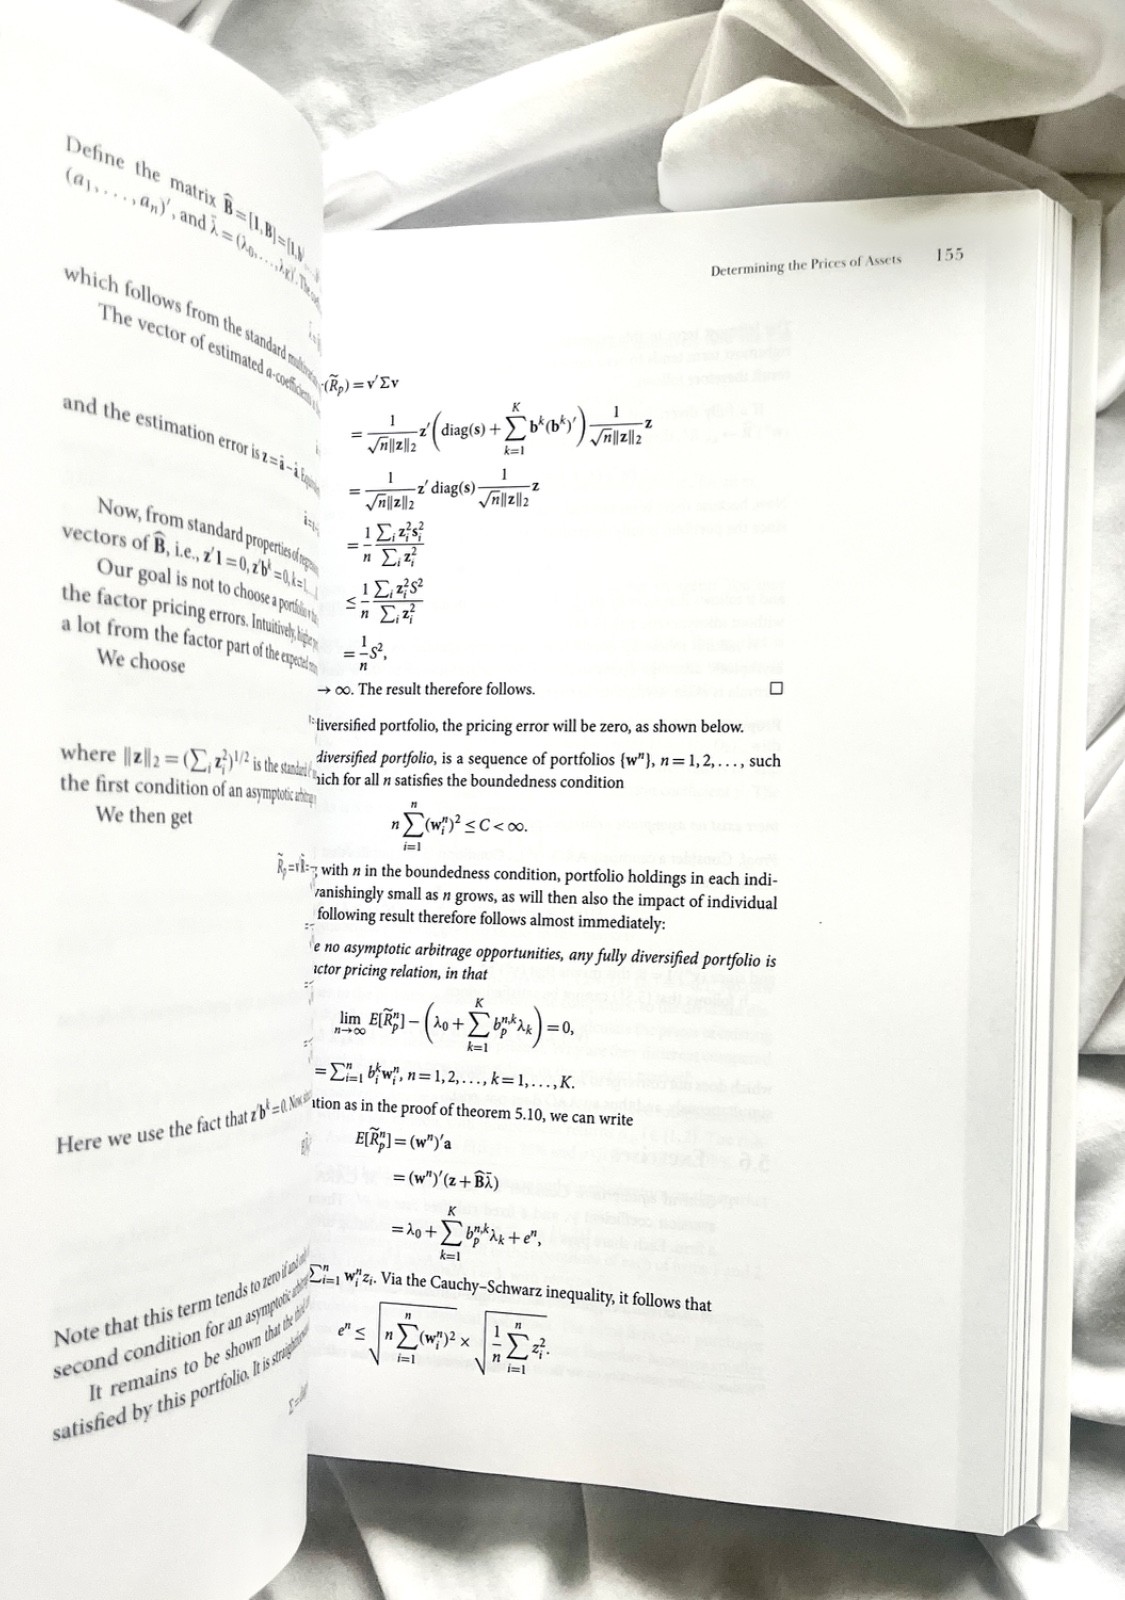 Define the matrix B̂ = [1, B] = [1, b
(a₁, . . . , aₙ)′, and λ̄ = (λ₀, . . . , λ_K)′. The
which follows from the standard
The vector of estimated a-coefficients
and the estimation error is z = â − ā.
Now, from standard properties of
vectors of B̂, i.e., z′1 = 0, z′bᵏ = 0, k = 1, . . .
Our goal is not to choose a portfolio
the factor pricing errors. Intuitively,
a lot from the factor part of the expected
We choose
where ‖z‖₂ = (∑ᵢ zᵢ²)^{1/2} is the standard
the first condition of an asymptotic
We then get
R̃ₚ = v′R̃ =
Here we use the fact that z′bᵏ = 0. Now,
Note that this term tends to zero if and
second condition for an asymptotic
It remains to be shown that the third
satisfied by this portfolio. It is
Determining the Prices of Assets 155
(R̃ₚ) = v′Σv
= 1/(√n‖z‖₂) z′ (diag(s) + ∑_{k=1}^{K} bᵏ(bᵏ)′) 1/(√n‖z‖₂) z
= 1/(√n‖z‖₂) z′ diag(s) 1/(√n‖z‖₂) z
= 1/n ∑ᵢ zᵢ²sᵢ² / ∑ᵢ zᵢ²
≤ 1/n ∑ᵢ zᵢ²S² / ∑ᵢ zᵢ²
= 1/n S²,
→ ∞. The result therefore follows. □
diversified portfolio, the pricing error will be zero, as shown below.
diversified portfolio, is a sequence of portfolios {wⁿ}, n = 1, 2, . . . , such
hich for all n satisfies the boundedness condition
n ∑_{i=1}^{n} (wᵢⁿ)² ≤ C < ∞.
with n in the boundedness condition, portfolio holdings in each indi-
vanishingly small as n grows, as will then also the impact of individual
following result therefore follows almost immediately:
e no asymptotic arbitrage opportunities, any fully diversified portfolio is
actor pricing relation, in that
lim_{n→∞} E[R̃ₚⁿ] − (λ₀ + ∑_{k=1}^{K} bₚ^{n,k}λₖ) = 0,
= ∑_{i=1}^{n} bᵢᵏwᵢⁿ, n = 1, 2, . . . , k = 1, . . . , K.
ation as in the proof of theorem 5.10, we can write
E[R̃ₚⁿ] = (wⁿ)′a
= (wⁿ)′(z + B̂λ̄)
= λ₀ + ∑_{k=1}^{K} bₚ^{n,k}λₖ + eⁿ,
∑_{i=1}^{n} wᵢⁿzᵢ. Via the Cauchy–Schwarz inequality, it follows that
eⁿ ≤ √(n ∑_{i=1}^{n} (wᵢⁿ)²) × √(1/n ∑_{i=1}^{n} zᵢ²).